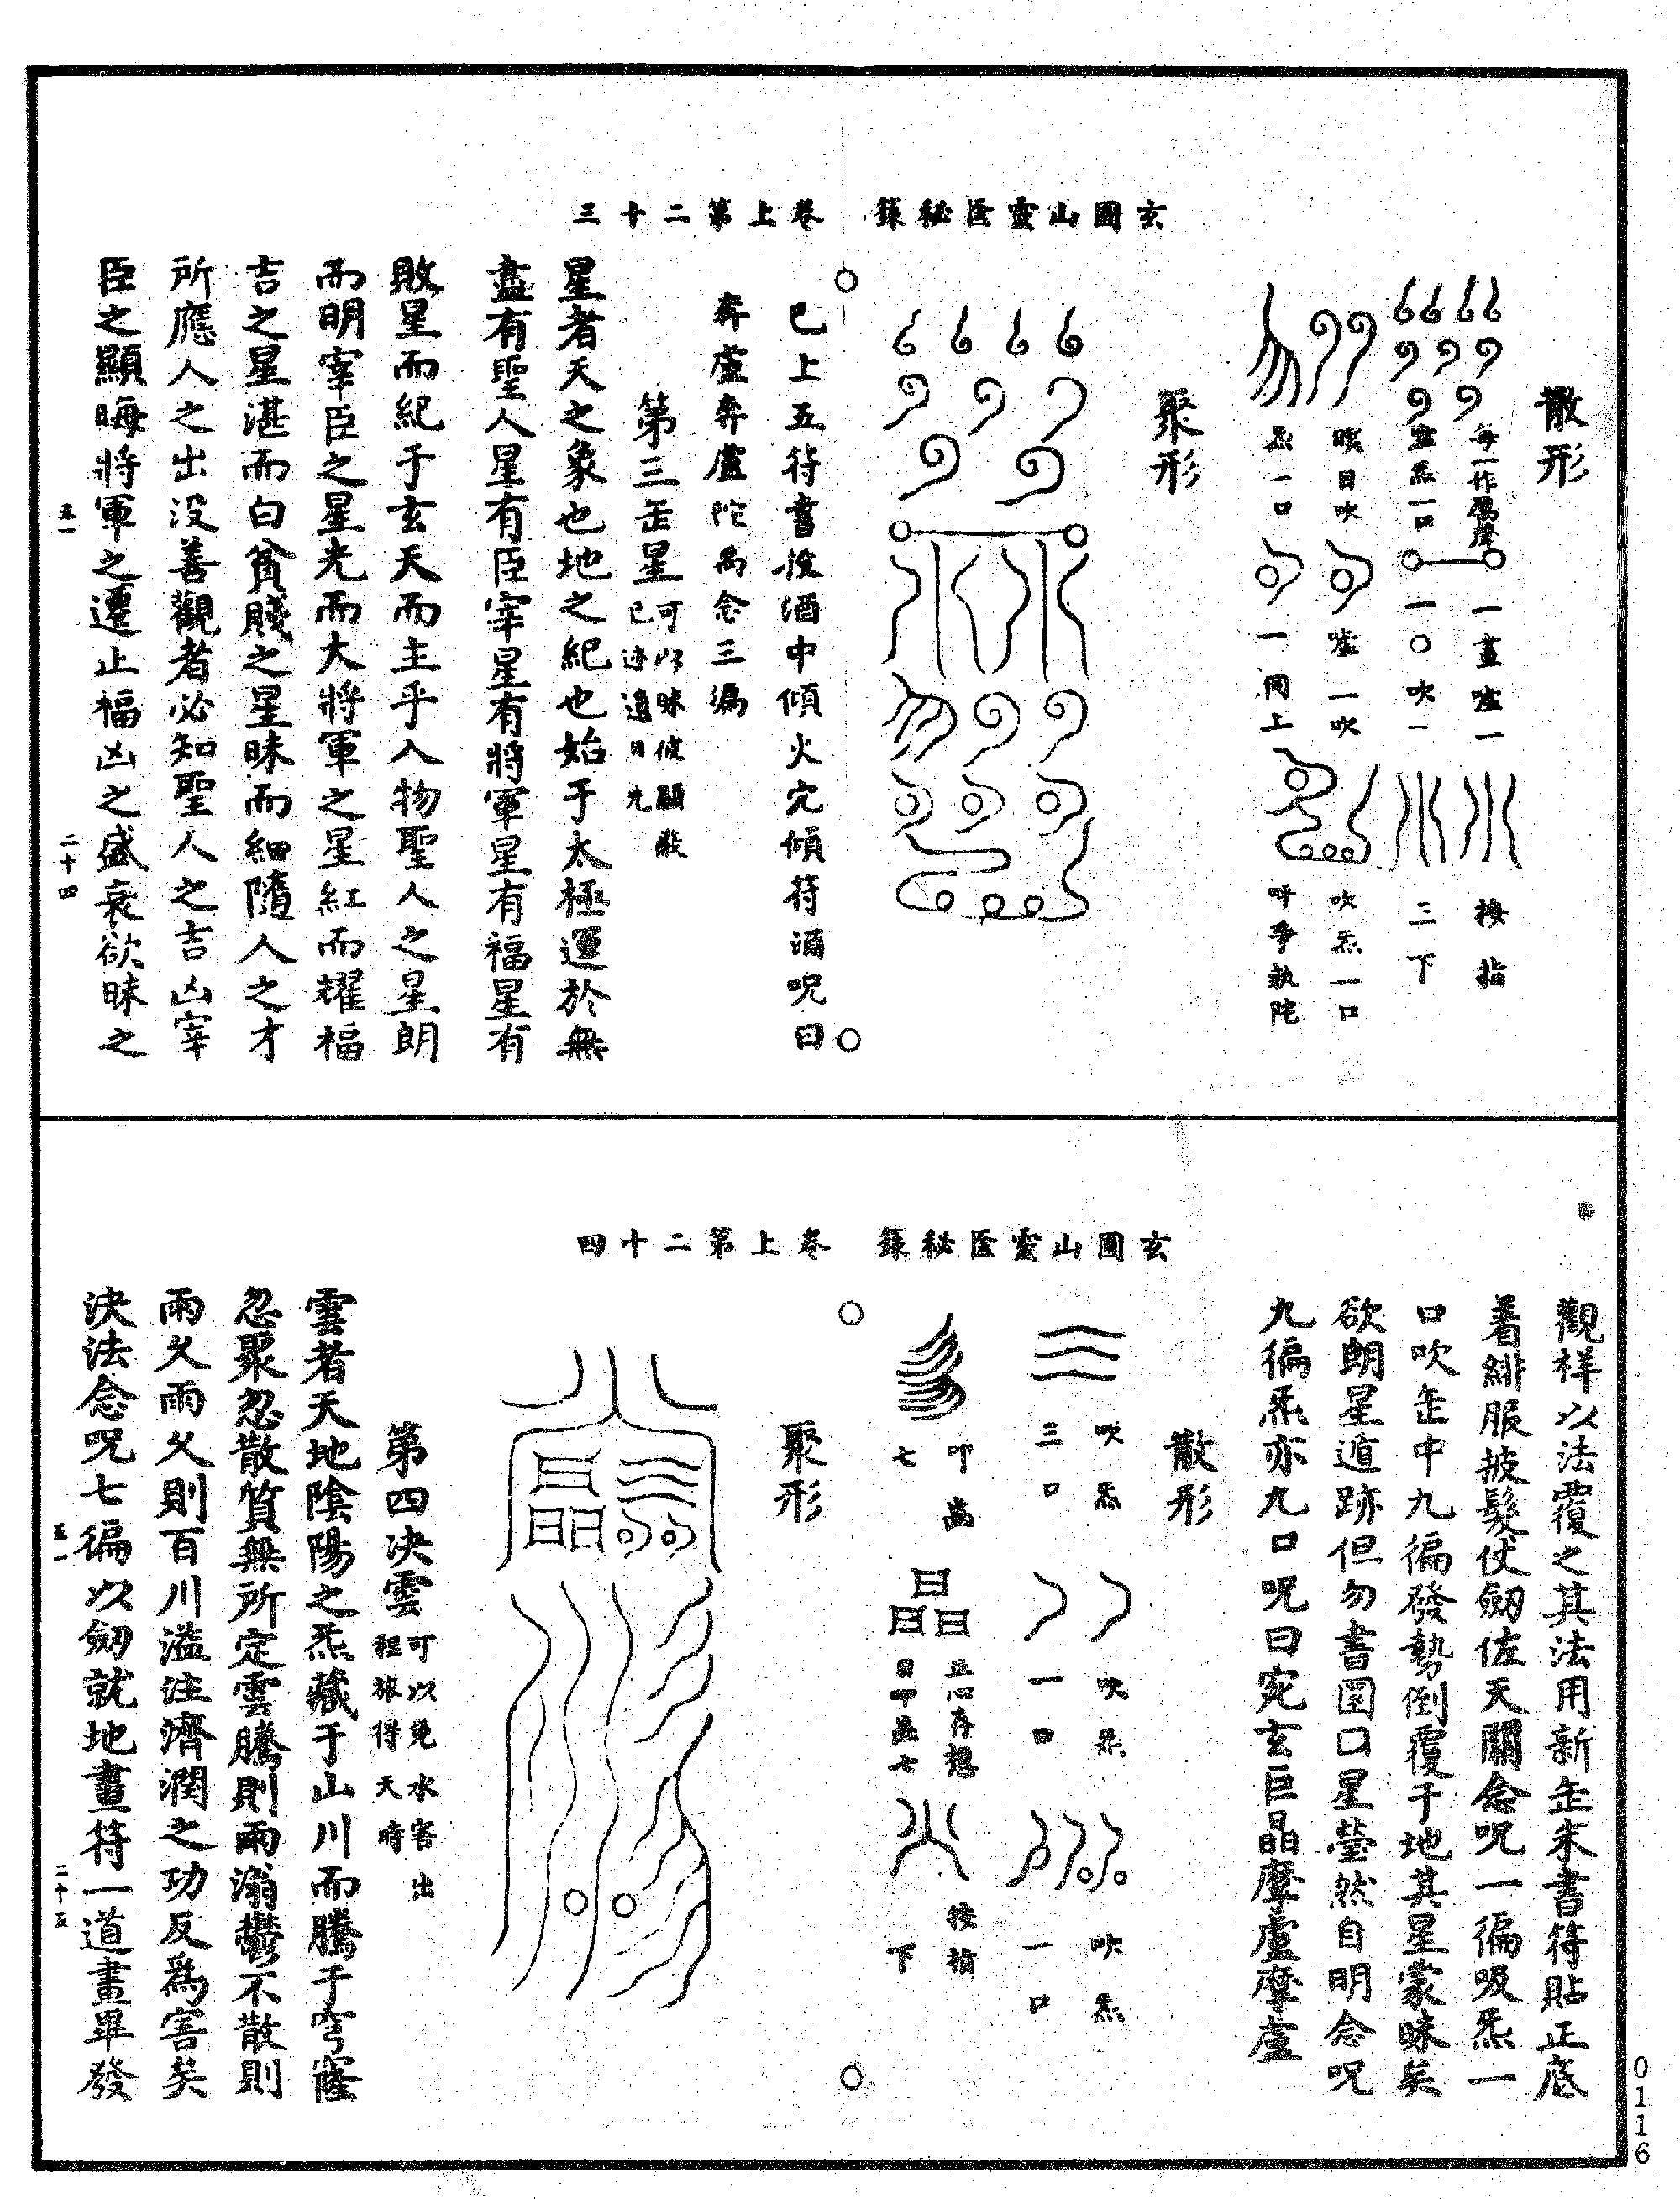 玄圃山靈匧秘籙　卷上第二十三
散形
每一作鳳聲
噓炁一口
一畫噓一
一〇吹一
按指
三下
噗日吹
炁一口
噓一吹
一同上
吹炁一口
呼爭執陀
聚形
已上五符書投酒中傾火完傾符酒呪曰
弃盧弃盧陀禹念三徧
第三缶星可以昧彼顯敵
已迹遁日光
星者天之象也地之紀也始于太極運於無
盡有聖人星有臣宰星有將軍星有福星有
敗星而紀于玄天而主乎人物聖人之星朗
而明宰臣之星光而大將軍之星紅而耀福
吉之星湛而白貧賤之星昧而細隨人之才
所應人之出没善觀者必知聖人之吉凶宰
臣之顯晦將軍之遷止福凶之盛衰欲昧之
五一
二十四
玄圃山靈匧秘籙　卷上第二十四
觀祥以法覆之其法用新缶朱書符貼正底
着緋服披髮仗劒佐天關念呪一徧吸炁一
口吹缶中九徧發勢倒覆于地其星蒙昧矣
欲朗星遁跡但勿書圀口星瑩然自明念呪
九徧炁亦九口呪曰宛玄巨晶摩盧摩盧
散形
吹炁
三口
吹炁
一口
吹炁
一口
叩齒
七
正心存想
日下齒七
按指
下
聚形
第四决雲可以免水害出
程旅得天晴
雲者天地陰陽之炁藏于山川而騰于穹窿
忽聚忽散質無所定雲騰則雨滃鬱不散則
雨久雨久則百川溢注濟潤之功反爲害矣
决法念呪七徧以劒就地畫符一道畫畢發
五一
二十五
0116